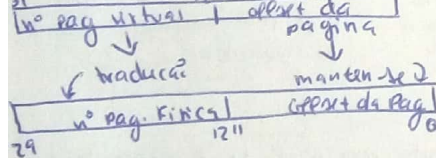 nº pag virtual | offset da pagina
tradução mantem-se
nº pag. Fisica | offset da Pag
29 12 11 0